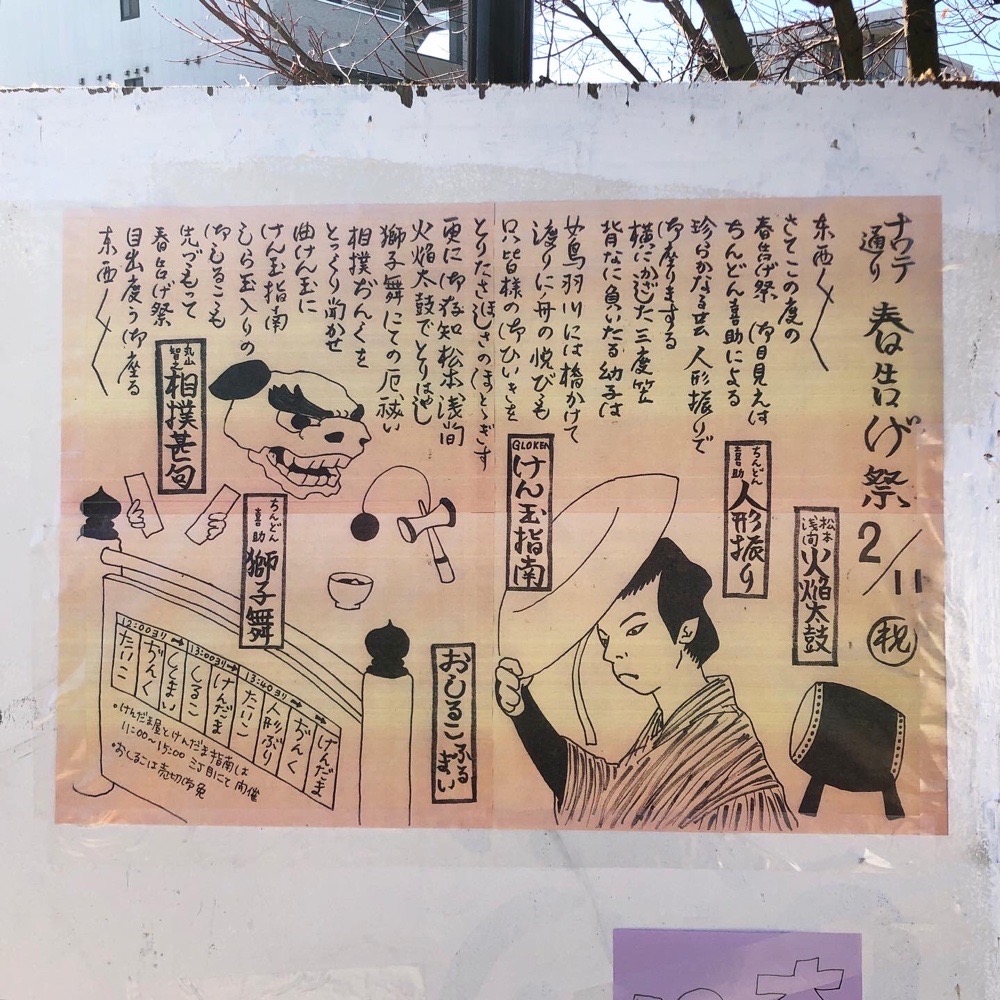 ナワテ通り 春告げ祭
2/11 祝
東西〱
さてこの度の
春告げ祭 御目見えは
ちんどん喜助による
珍らかなる芸 人形振りで
御座りまする
横にかざした三度笠
背なに負いたる幼子は
女鳥羽川には橋かけて
渡りに舟の悦びも
只皆様の御ひいきを
とりたさほしさのほとゝぎす
更に御存知松本浅間
火焔太鼓でとりはやし
獅子舞にての厄祓い
相撲ぢんくを
とっくり聞かせ
曲けん玉に
けん玉指南
しら玉入りの
おしるこも
先づもって
春告げ祭
目出度う御座る
東西〱
松本浅間 火焔太鼓
ちんどん喜助 人形振り
GLOKEN けん玉指南
丸山智之 相撲甚句
ちんどん喜助 獅子舞
おしるこふるまい
12:00ヨリ→
たいこ
ぢんく
ししまい
13:00ヨリ→
しるこ
けんだま
13:40ヨリ→
たいこ
人形ぶり
ぢんく
けんだま
•けんだま屋とけんだま指南は
11:00〜15:00 三丁目にて開催
•おしるこは売切御免